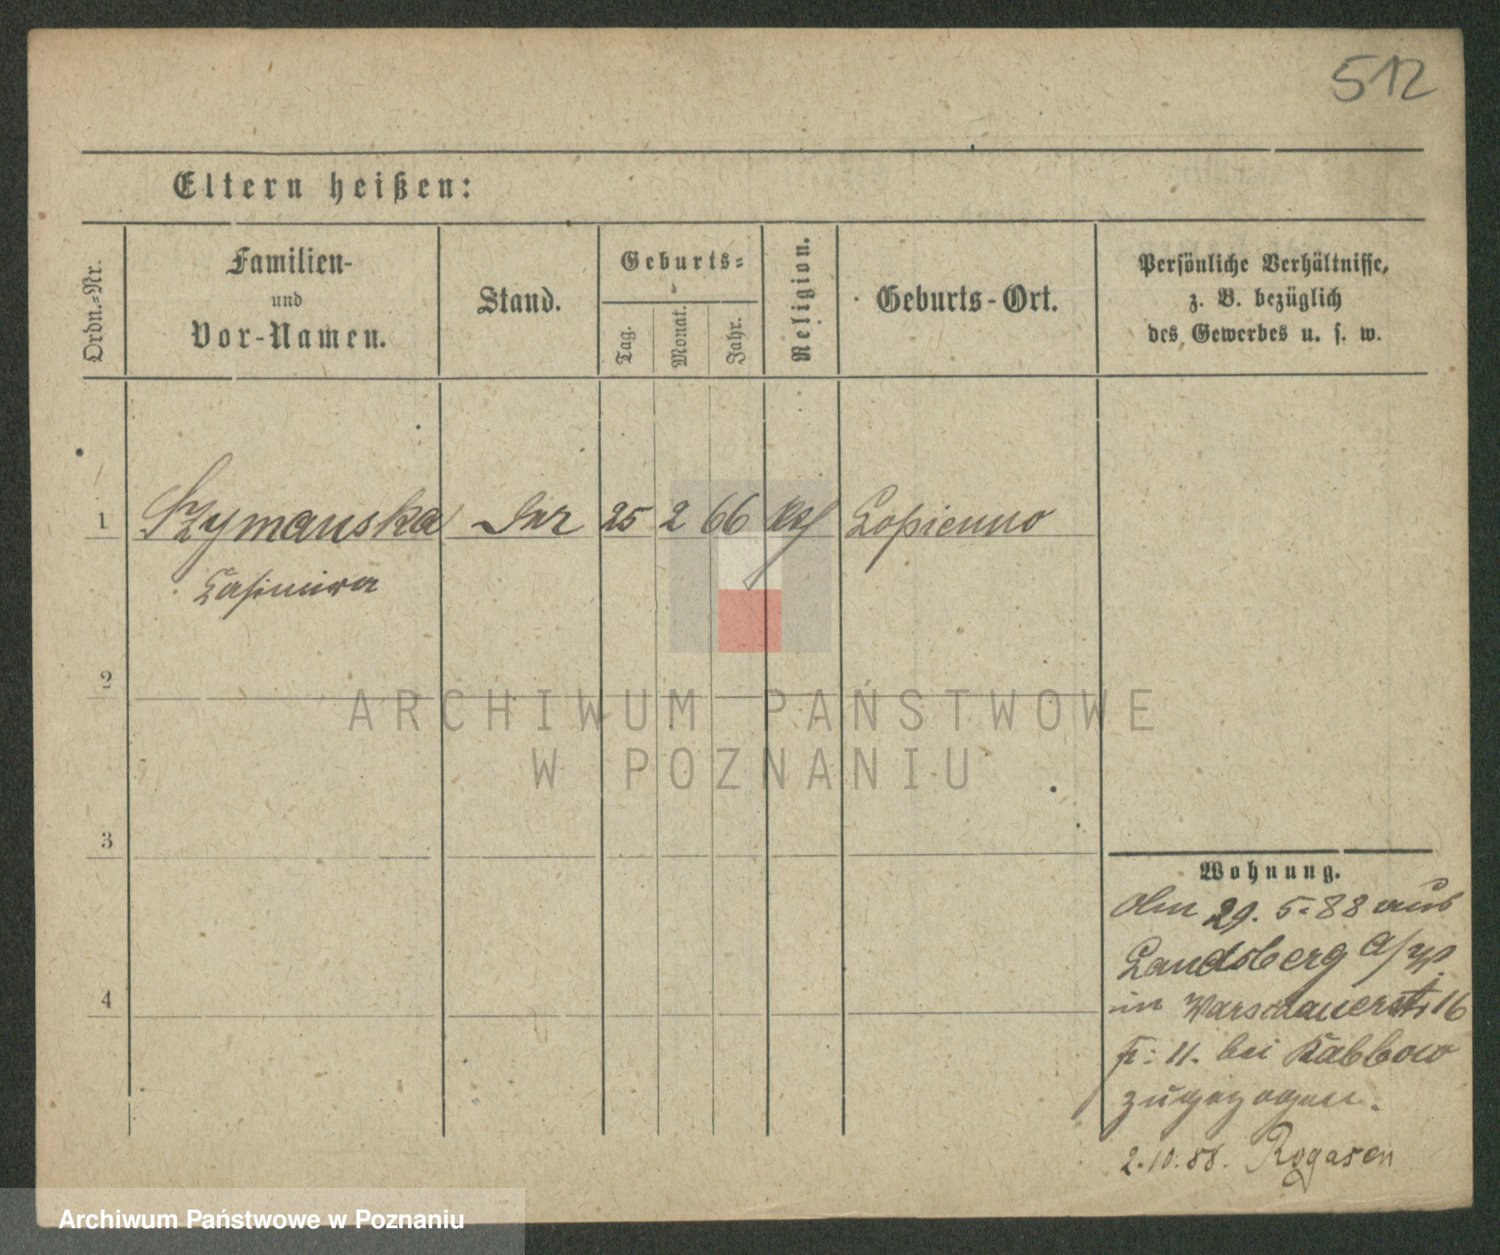 512
Eltern heißen:
Ordn.-Nr.
Familien-
und
Vor-Namen.
Stand.
Geburts-
Tag.
Monat.
Jahr.
Religion.
Geburts-Ort.
Persönliche Verhältnisse,
z. B. bezüglich
des Gewerbes u. s. w.
1 Szymanska 25 2 66 Lopienno
Casimira
2
3
4
Wohnung.
Am 29. 5. 88 aus
Landsberg a/W
in Warschauerst. 16
bei Kabbow
zugezogen.
2.10.88. Rogasen
ARCHIWUM PAŃSTWOWE
W POZNANIU
Archiwum Państwowe w Poznaniu